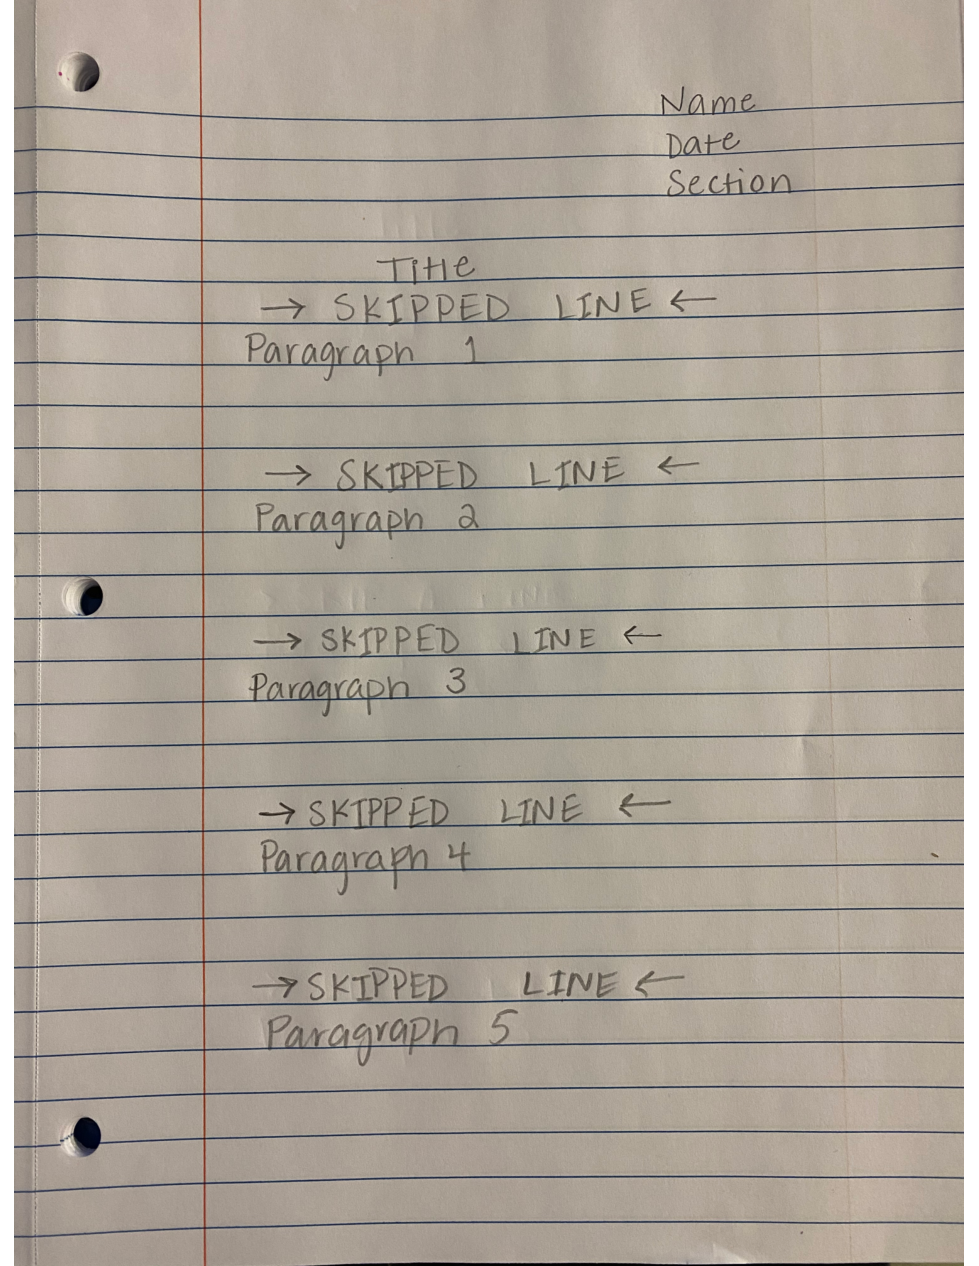 Name
Date
Section
Title
→ SKIPPED LINE ←
Paragraph 1
→ SKIPPED LINE ←
Paragraph 2
→ SKIPPED LINE ←
Paragraph 3
→ SKIPPED LINE ←
Paragraph 4
→ SKIPPED LINE ←
Paragraph 5